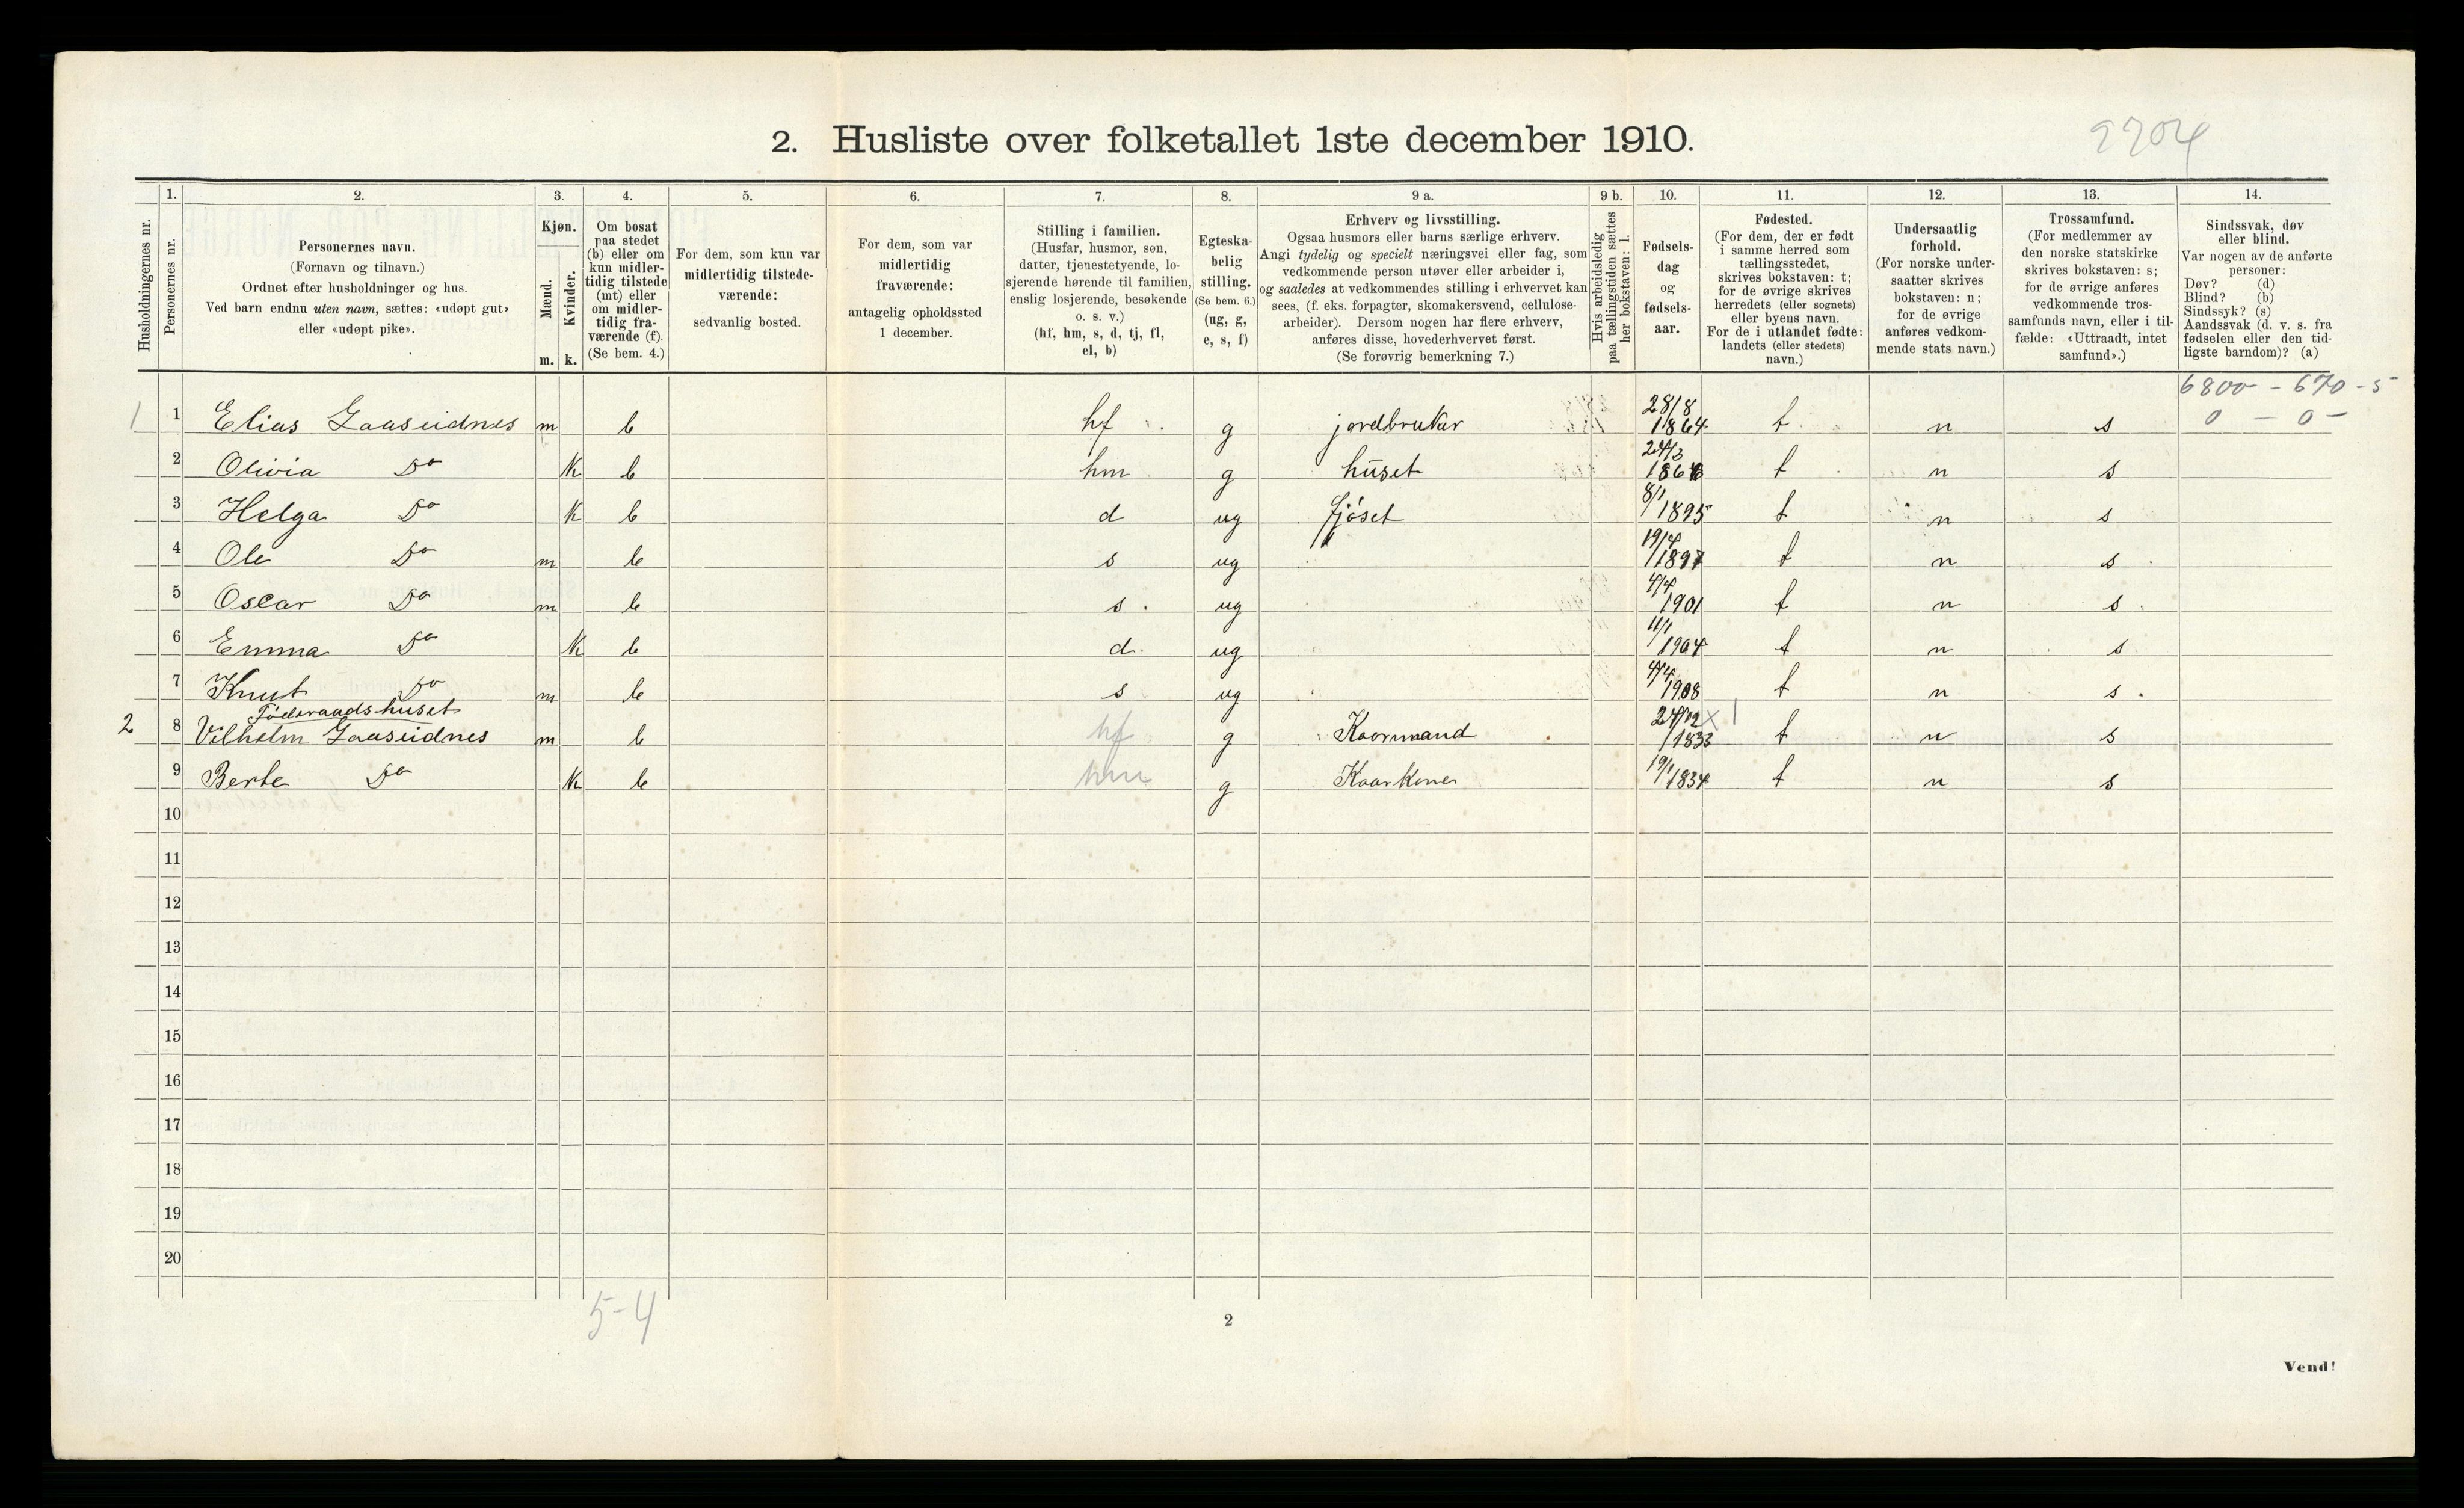 2. Husliste over folketallet 1ste december 1910.
2204
Husholdningernes nr.
1.
Personernes nr.
2.
Personernes navn.
(Fornavn og tilnavn.)
Ordnet efter husholdninger og hus.
Ved barn endnu uten navn, sættes: «udøpt gut»
eller «udøpt pike».
3.
Kjøn.
Mænd.
Kvinder.
m. k.
4.
Om bosat
paa stedet
(b) eller om
kun midler-
tidig tilstede
(mt) eller
om midler-
tidig fra-
værende (f).
(Se bem. 4.)
5.
For dem, som kun var
midlertidig tilstede-
værende:
sedvanlig bosted.
6.
For dem, som var
midlertidig
fraværende:
antagelig opholdssted
1 december.
7.
Stilling i familien.
(Husfar, husmor, søn,
datter, tjenestetyende, lo-
sjerende hørende til familien,
enslig losjerende, besøkende
o. s. v.)
(hf, hm, s, d, tj, fl,
el, b)
8.
Egteska-
belig
stilling.
(Se bem. 6.)
(ug, g,
e, s, f)
9 a.
Erhverv og livsstilling.
Ogsaa husmors eller barns særlige erhverv.
Angi tydelig og specielt næringsvei eller fag, som
vedkommende person utøver eller arbeider i,
og saaledes at vedkommendes stilling i erhvervet kan
sees, (f. eks. forpagter, skomakersvend, cellulose-
arbeider). Dersom nogen har flere erhverv,
anføres disse, hovederhvervet først.
(Se forøvrig bemerkning 7.)
9 b.
Hvis arbeidsledig
paa tællingstiden sættes
her bokstaven: l.
10.
Fødsels-
dag
og
fødsels-
aar.
11.
Fødested.
(For dem, der er født
i samme herred som
tællingsstedet,
skrives bokstaven: t;
for de øvrige skrives
herredets (eller sognets)
eller byens navn.
For de i utlandet fødte:
landets (eller stedets)
navn.)
12.
Undersaatlig
forhold.
(For norske under-
saatter skrives
bokstaven: n;
for de øvrige
anføres vedkom-
mende stats navn.)
13.
Trossamfund.
(For medlemmer av
den norske statskirke
skrives bokstaven: s;
for de øvrige anføres
vedkommende tros-
samfunds navn, eller i til-
fælde: «Uttraadt, intet
samfund».)
14.
Sindssvak, døv
eller blind.
Var nogen av de anførte
personer:
Døv? (d)
Blind? (b)
Sindssyk? (s)
Aandssvak (d. v. s. fra
fødselen eller den tid-
ligste barndom)? (a)
6800 - 670 - 5
0 - 0 -
1 1 Elias Gaaseidnes m b hf g jordbruker 28/8 1864 t n s
2 Olivia Do k b hm g huset t n s
3 Helga Do k b d ug fjøset 8/1 1895 t n s
4 Ole Do m b s ug 19/4 1897 t n s
5 Oscar Do m b s. ug 4/4 1901 t n s
6 Emma Do k b d. ug 11/1 1904 t n s
7 Knut Do m b s ug 4/4 1908 t n s
Føderaadshuset
2 8 Vilhelm Gaaseidnes m b hf g Kaarmand 24/12 1833 x t n s
9 Berte Do k b hm g Kaarkone 19/1 1834 t n s
10
11
12
13
14
15
16
17
18
19
20
5-4
2
Vend!